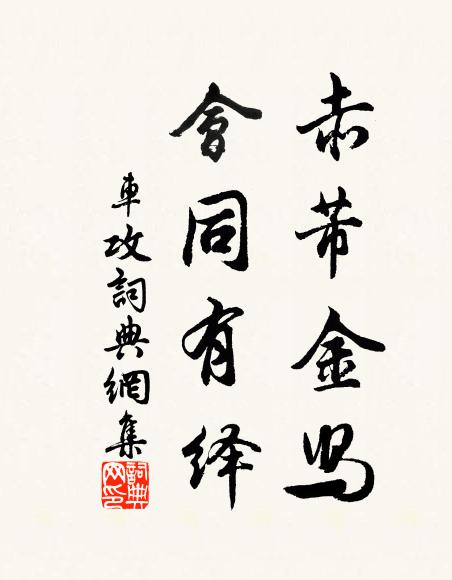 赤芾金舄
會同有绎
車攻詞典網集
詞典
网印